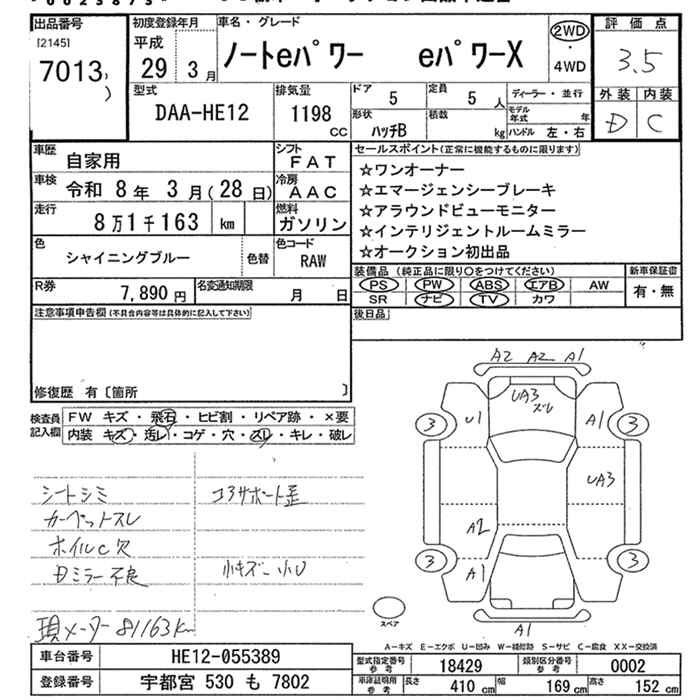 出品番号 初度登録年月 車名・グレード 評価点
[2145] 平成
7013 29 3月 ノートeパワー eパワーX 2WD ・ 4WD 3.5
型式 排気量 ドア 定員 ディーラー・並行 外装 内装
DAA-HE12 1198 CC 5 5人 モデル年式 年 D C
形状 積載
ハッチB kg ハンドル 左・右
車歴 自家用 シフト FAT セールスポイント(正常に機能するものに限ります)
車検 令和 8年 3月(28日) 冷房 AAC
☆ワンオーナー
☆エマージェンシーブレーキ
走行 8万1千163 km 燃料 ガソリン
☆アラウンドビューモニター
☆インテリジェントルームミラー
☆オークション初出品
色 シャイニングブルー 色替 色コード RAW
装備品(純正品に限り○をつけてください) 新車保証書
PS PW ABS エアB AW 有・無
SR ナビ TV カワ
R券 7,890円 名変通知期限 月 日
後日品
注意事項申告欄(不具合内容等は具体的に記入して下さい)
修復歴 有〔箇所 〕
検査員記入欄 FW キズ・飛石・ヒビ割・リペア跡・×要
内装 キズ・汚レ・コゲ・穴・スレ・キレ・破レ
A2 A2 A1
UA3
ズレ
3 U1 A1 3
UA3
A2
3 A1 3
A1
スペア
シートシミ コアサポート歪
カーペットスレ
ホイルC欠
Dミラー不良 小キズ 小U
現メーター 81163km
A-キズ E-エクボ U-凹み W-補修跡 S-サビ C-腐食 XX-交換済
車台番号 HE12-055389 型式指定番号 参考 18429 類別区分番号 参考 0002
登録番号 宇都宮 530 も 7802 車庫証明用 参考 長さ 410 cm 幅 169 cm 高さ 152 cm